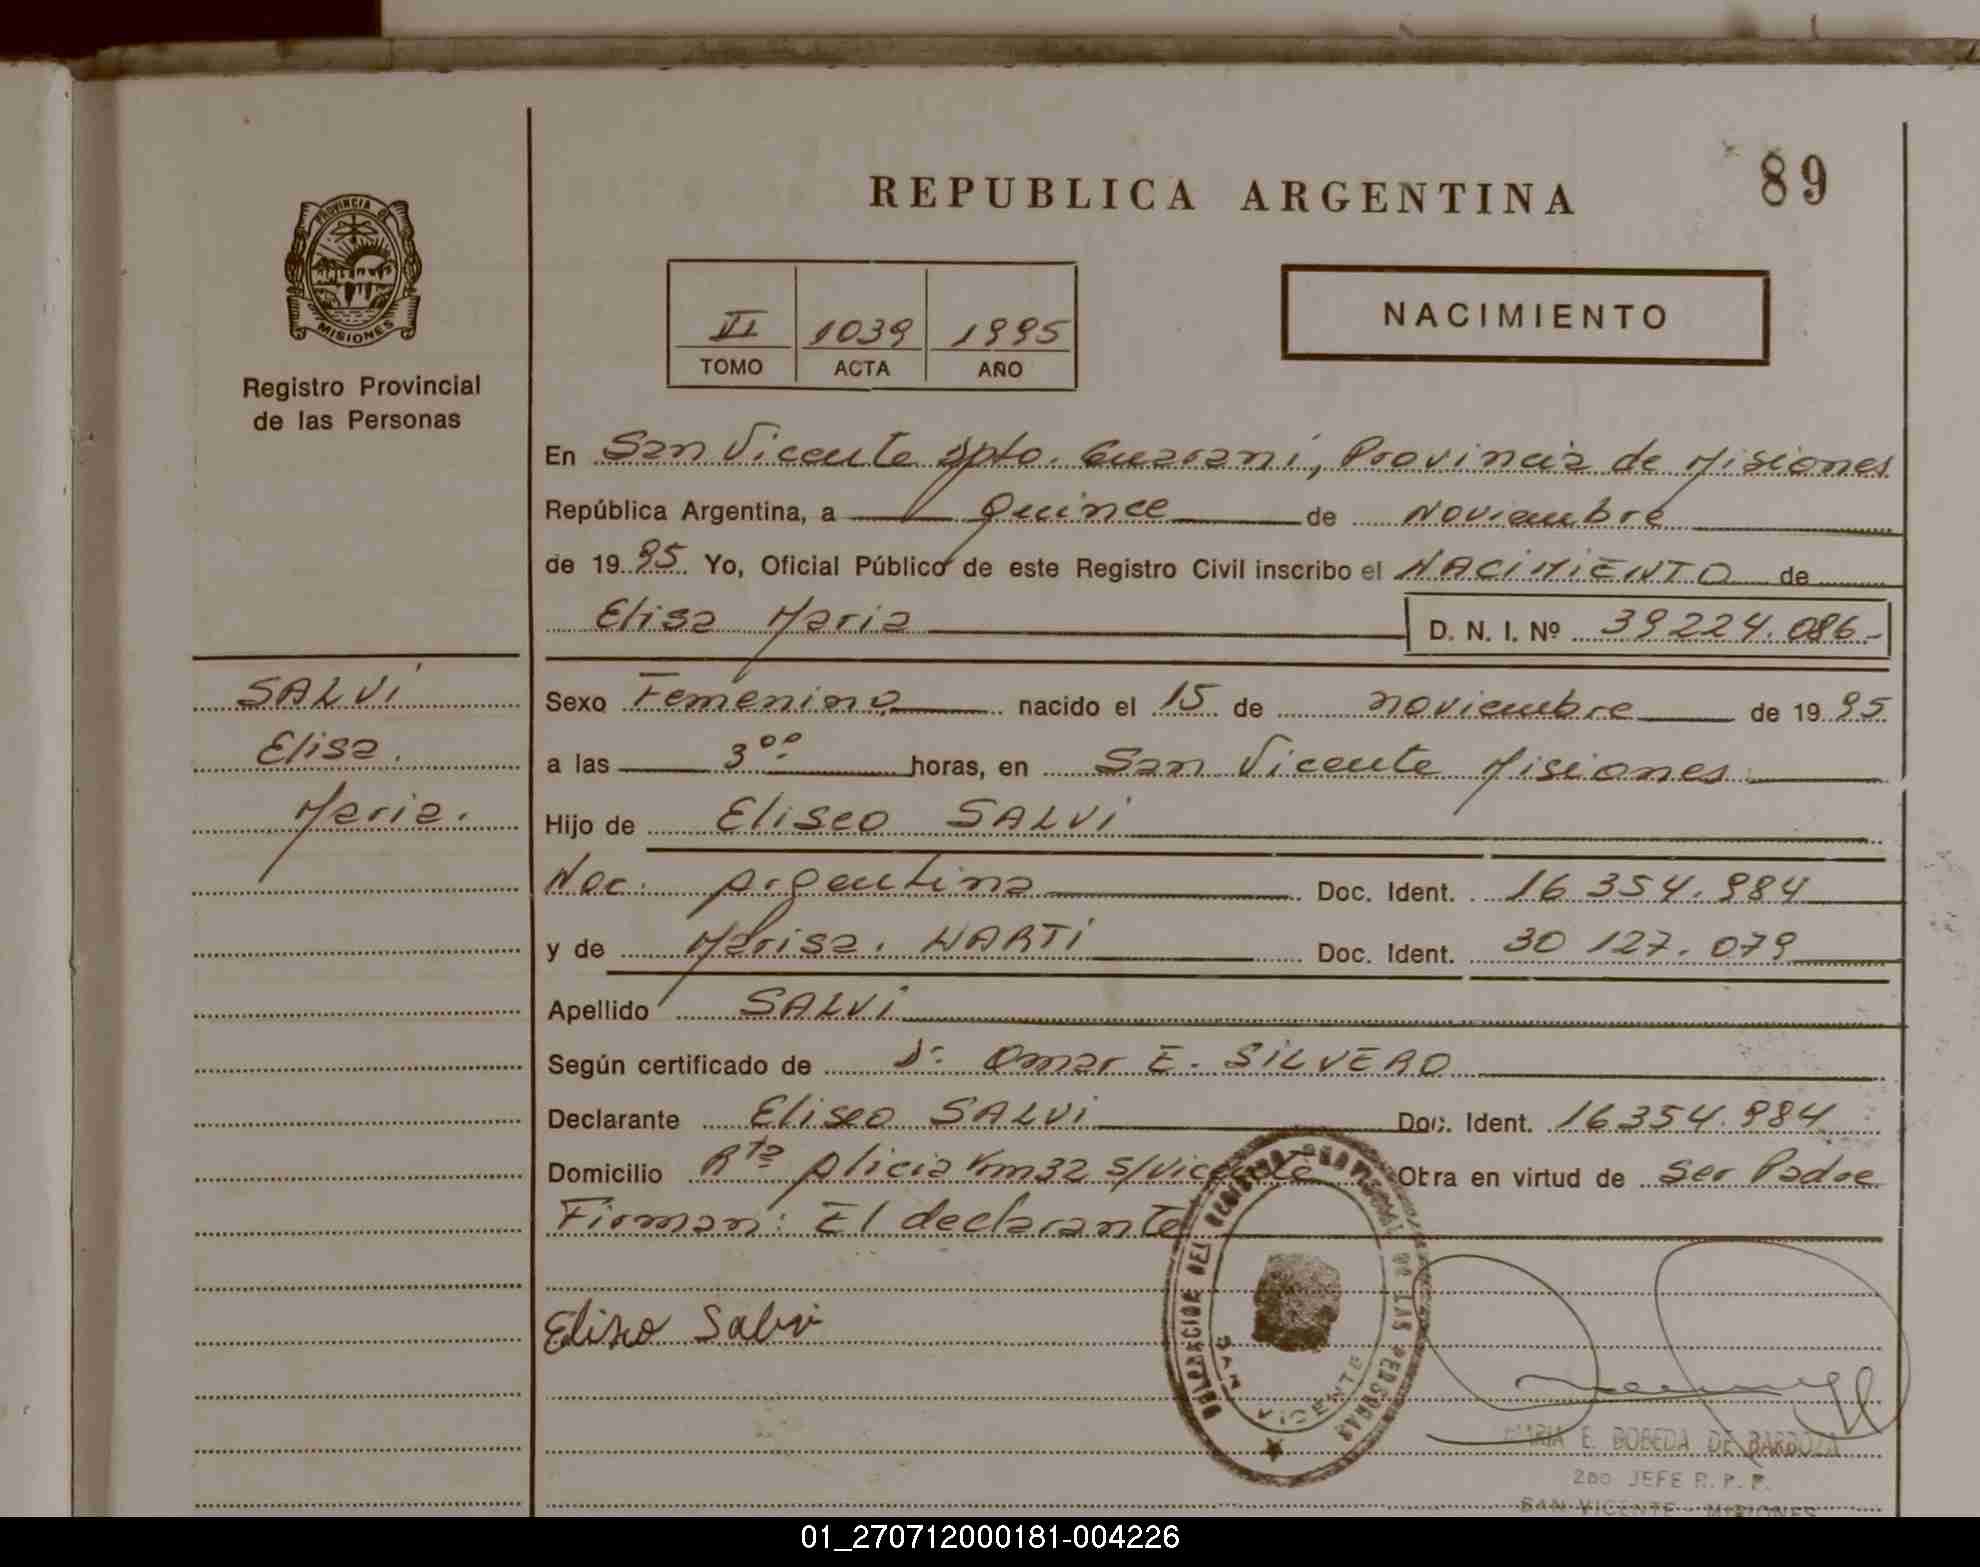 REPUBLICA ARGENTINA
89
PROVINCIA DE
MISIONES
Registro Provincial
de las Personas
VI 1039 1995
TOMO ACTA AÑO
NACIMIENTO
En San Vicente Dpto. Guaraní, Provincia de Misiones
República Argentina, a Quince de Noviembre
de 1995 Yo, Oficial Público de este Registro Civil inscribo el NACIMIENTO de
Elisa Maria D. N. I. Nº 39224.086.-
SALVI
Elisa.
Maria.
Sexo Femenino nacido el 15 de noviembre de 1995
a las 3°° horas, en San Vicente Misiones
Hijo de Eliseo SALVI
Nac. Argentina Doc. Ident. 16 354.984
y de Marisa. WARTI Doc. Ident. 30 127.079
Apellido SALVI
Según certificado de Dr. Omar E. SILVERO
Declarante Eliseo SALVI Doc. Ident. 16354.984
Domicilio Rta Alicia Km32 S/Vicente Obra en virtud de Ser Padre
Firman: El declarante
Eliseo Salvi
DELEGACION DEL REGISTRO PROVINCIAL DE LAS PERSONAS
SAN VICENTE
MARIA E. BOBEDA DE BARBOZA
2DO JEFE R. P. P.
SAN VICENTE - MISIONES
01_270712000181-004226